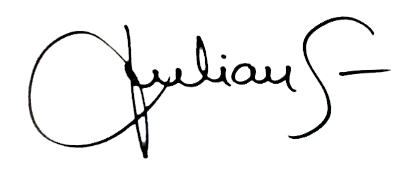 Julian S-